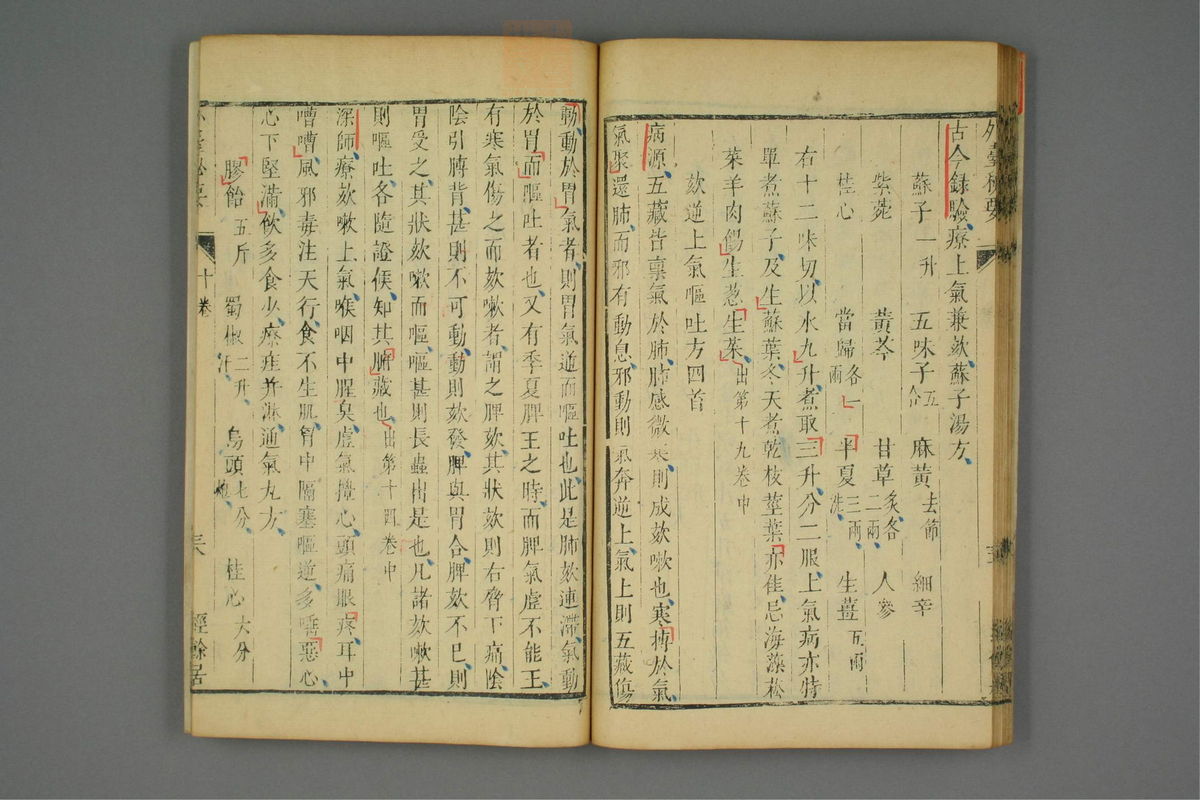 古今録驗療上氣兼欬蘇子湯方
蘇子一升 五味子五合 麻黃去節 細辛
紫菀 黃芩 甘草炙各二兩 人參
桂心 當歸各一兩 半夏三兩洗 生薑五兩
右十二味切以水九升煮取三升分二服上氣病亦特
單煮蘇子及生蘇葉冬天煮乾枝莖葉亦佳忌海藻菘
菜羊肉餳生葱生菜出第十九卷中
欬逆上氣嘔吐方四首
病源五藏皆稟氣於肺肺感微寒則成欬嗽也寒摶於氣
氣聚還肺而邪有動息邪動則氣奔逆上氣上則五藏傷
動動於胃氣者則胃氣逆而嘔吐也此是肺欬連滯氣動
於胃而嘔吐者也又有季夏脾王之時而脾氣虛不能王
有寒氣傷之而欬嗽者謂之脾欬其狀欬則右脅下痛陰
陰引膊背甚則不可動動則欬發脾與胃合脾欬不已則
胃受之其狀欬嗽而嘔嘔甚則長蟲出是也凡諸欬嗽甚
則嘔吐各隨證候知其腑藏也出第十四卷中
深師療欬嗽上氣喉咽中腥臭虛氣攪心頭痛眼疼耳中
嘈嘈風邪毒注天行食不生肌胷中隔塞嘔逆多唾惡心
心下堅滿飲多食少療疰并淋通氣丸方
膠飴五斤 蜀椒二升汗 烏頭七分炮 桂心六分
十卷
經餘居